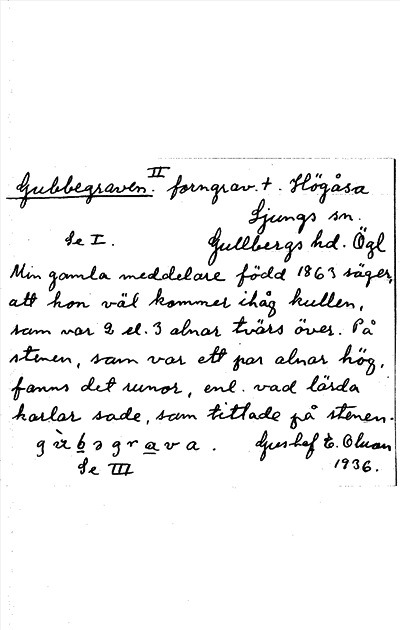 Gubbegraven. II forngrav. + . Högåsa
Ljungs sn.
Se I. Gullbergs hd. Ögl
Min gamla meddelare född 1863 säger,
att hon väl kommer ihåg kullen,
som var 2 el. 3 alnar tvärs över. På
stenen, som var ett par alnar hög,
fanns det runor, enl. vad lärda
karlar sade, som tittade på stenen.
E. Olsson
Se III 1936.